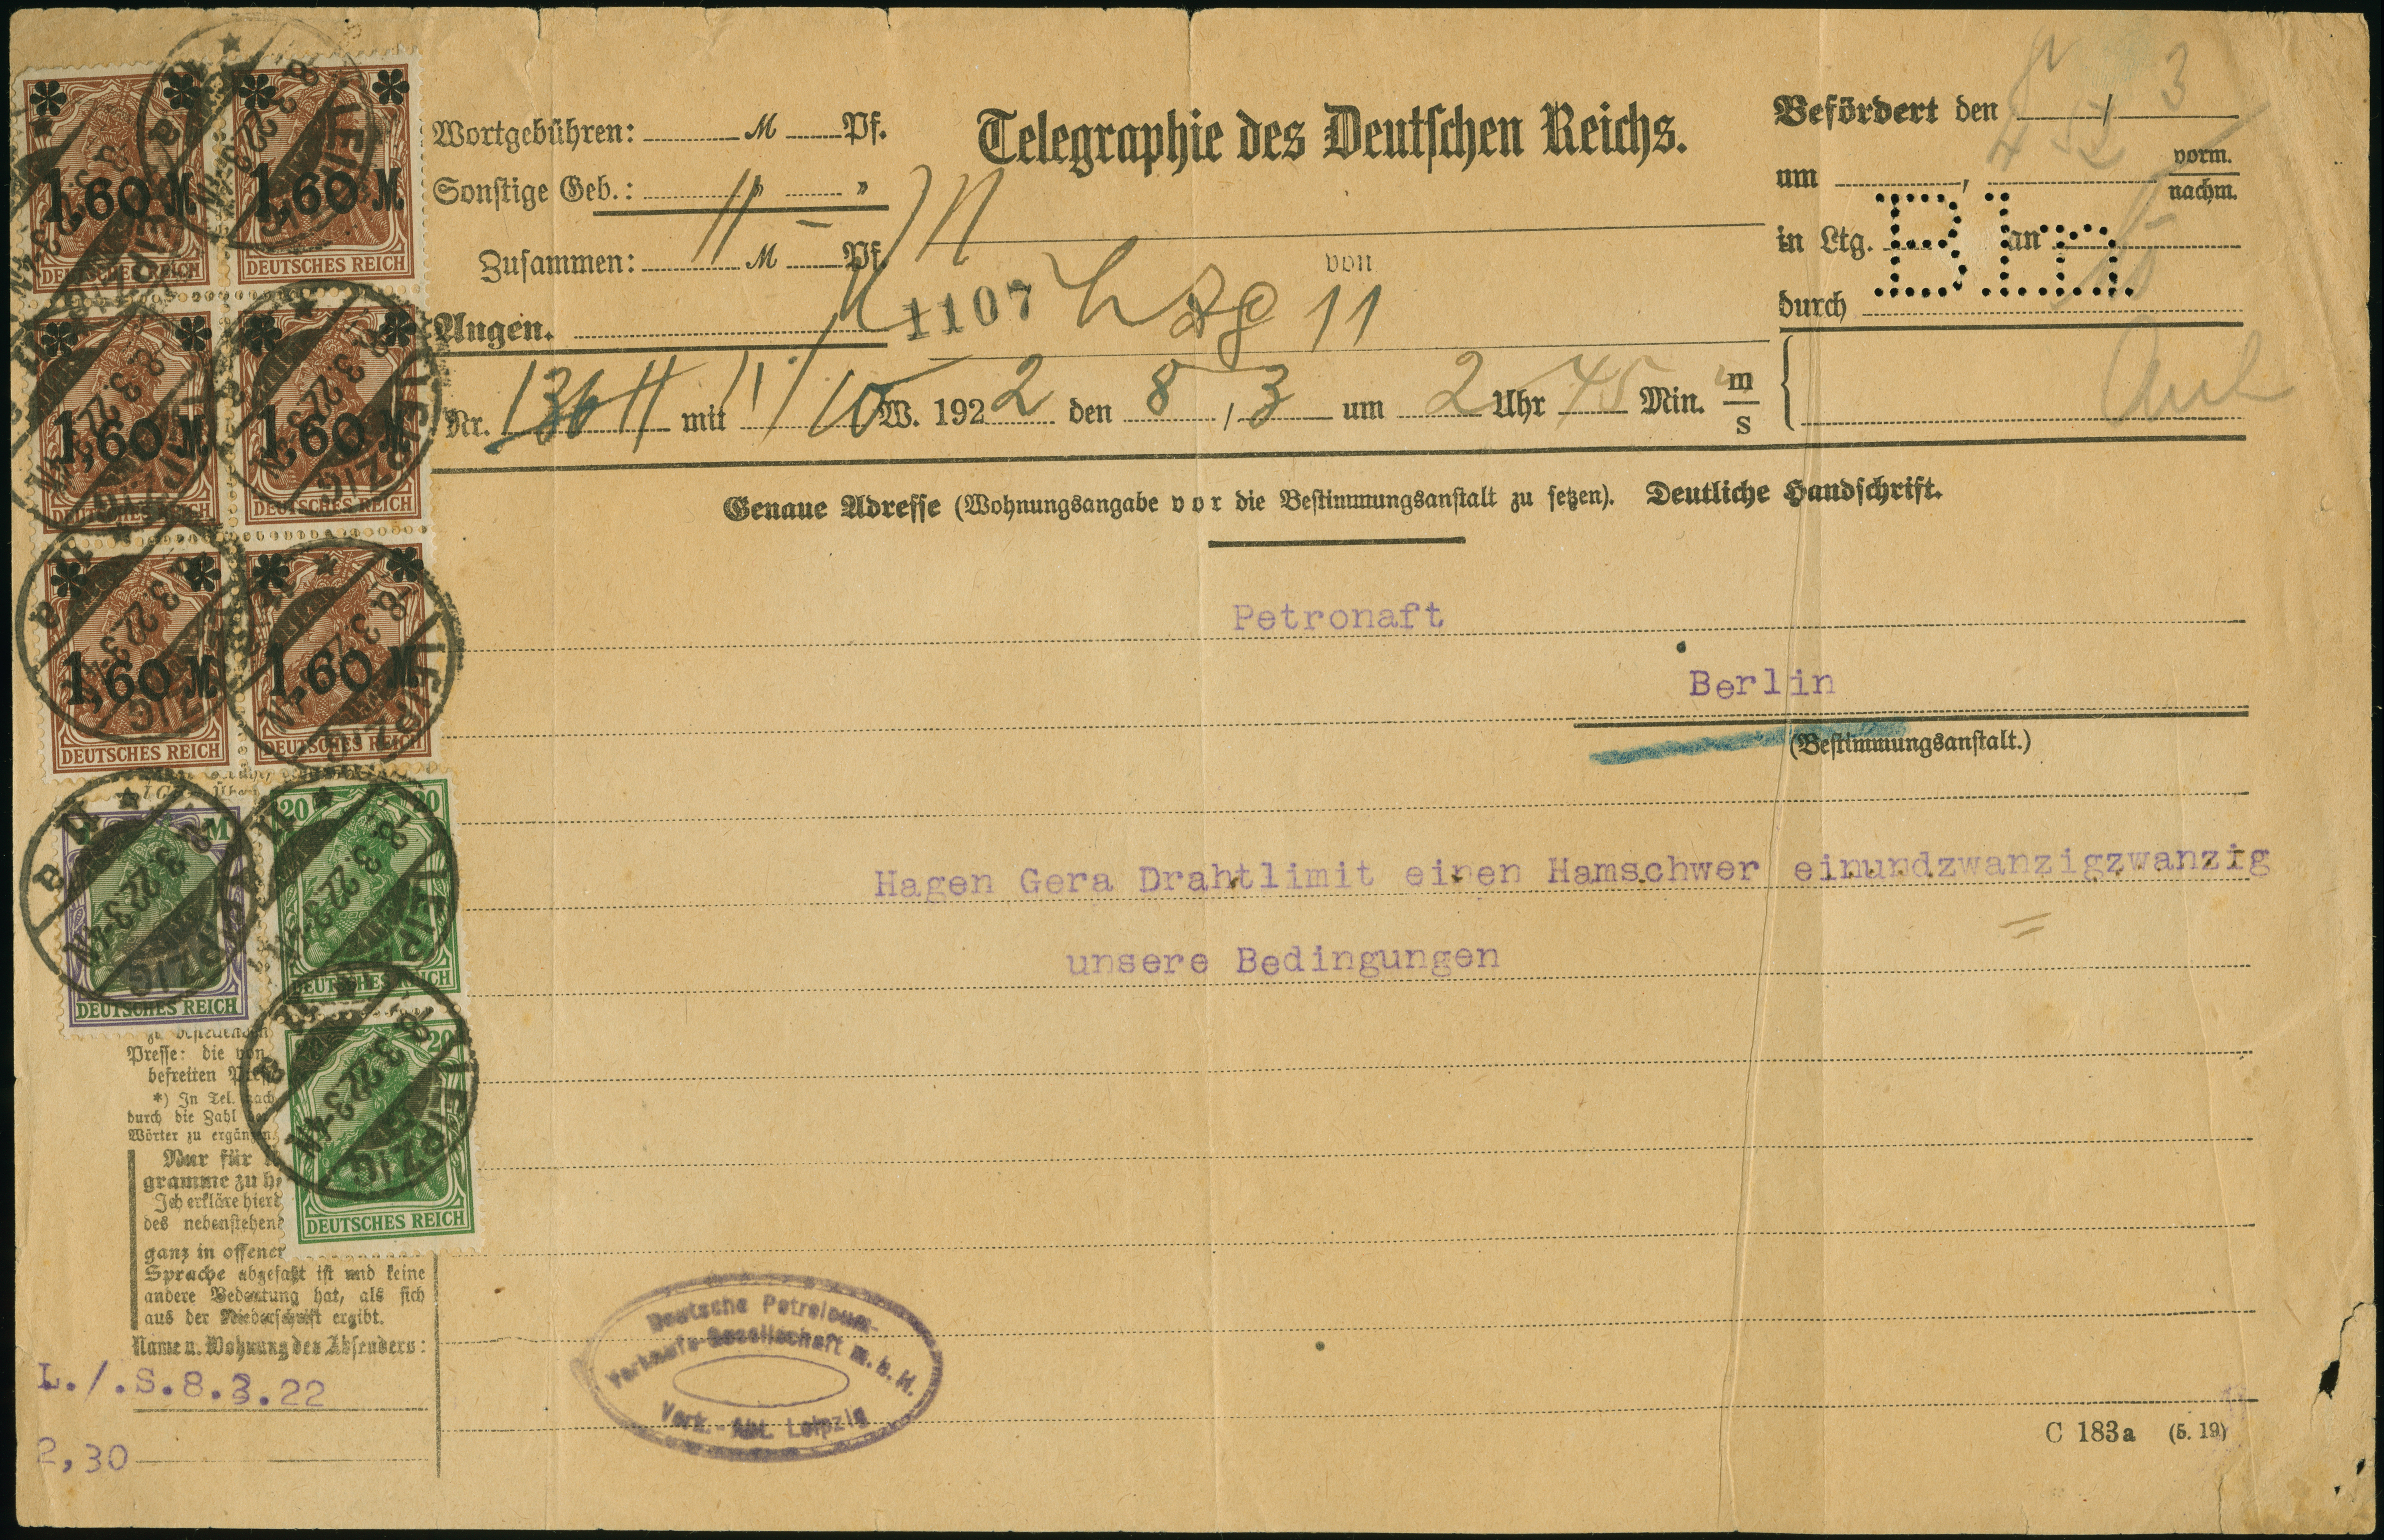 1,60 M 1,60 M
DEUTSCHES REICH DEUTSCHES REICH
1,60 M 1,60 M
DEUTSCHES REICH DEUTSCHES REICH
1,60 M 1,60 M
DEUTSCHES REICH DEUTSCHES REICH
M 20 20
DEUTSCHES REICH DEUTSCHES REICH
20
DEUTSCHES REICH
LEIPZIG
8.3.22.3-4N
Wortgebühren: M Pf.
Sonstige Geb.: " "
Zusammen: M Pf.
Angen.
Telegraphie des Deutschen Reichs.
1107
von
11
Befördert den /
um , vorm.
nachm.
in Ltg. an
durch
Bln
Nr. 136 mit 11/10 W. 1922 den 8/3 um 2 Uhr 45 Min. m
s
Genaue Adresse (Wohnungsangabe vor die Bestimmungsanstalt zu setzen). Deutliche Handschrift.
Petronaft
Berlin
(Bestimmungsanstalt.)
Hagen Gera Drahtlimit einen Hamschwer einundzwanzigzwanzig
unsere Bedingungen
Presse: die von
befreiten
*) In Tel. nach
durch die Zahl der
Wörter zu ergänzen.
Nur für
gramme zu
Ich erkläre hier
des nebenstehend
ganz in offener
Sprache abgefaßt ist und keine
andere Bedeutung hat, als sich
aus der Niederschrift ergibt.
Name u. Wohnung des Absenders:
L./.S.8.3.22
2,30
Deutsche Petroleum-
Verkaufs-Gesellschaft m.b.H.
Verk.-Abt. Leipzig
C 183a (5. 19)